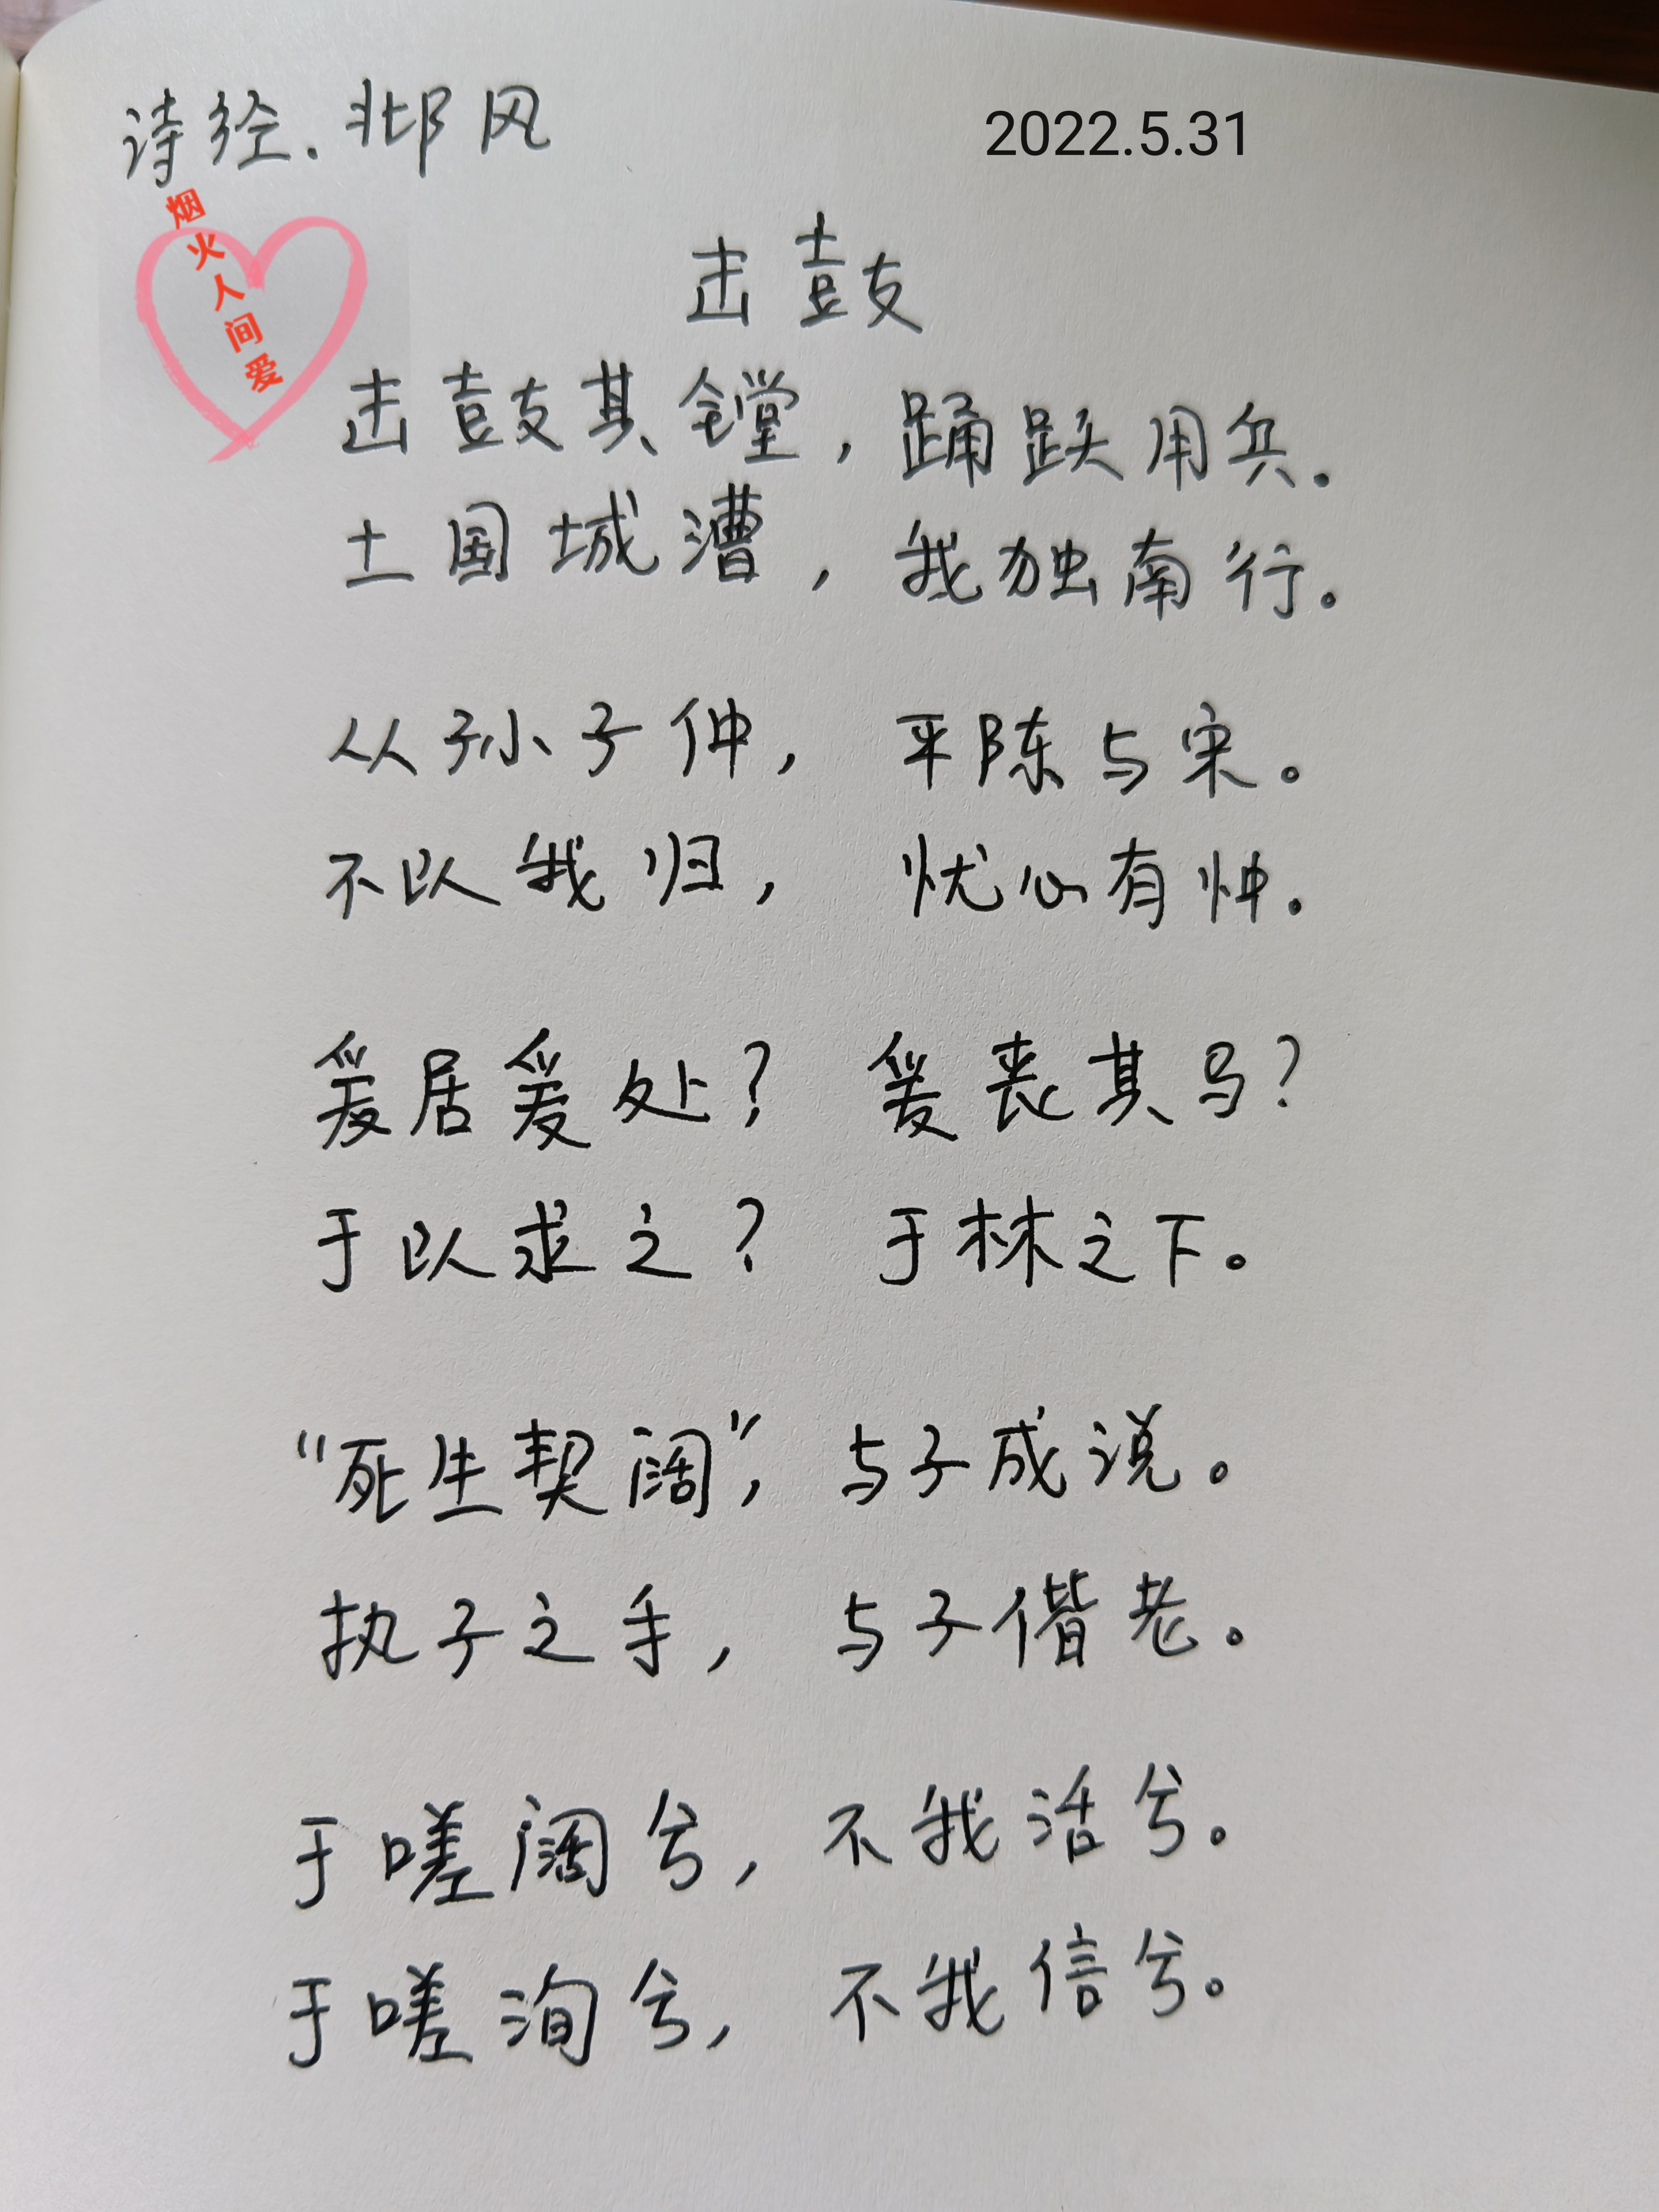 诗经.邶风
2022.5.31
烟火人间爱
击鼓
击鼓其镗，踊跃用兵.
土国城漕，我独南行。
从孙子仲，平陈与宋。
不以我归，忧心有忡.
爰居爰处？爰丧其马？
于以求之？于林之下。
“死生契阔”，与子成说。
执子之手，与子偕老。
于嗟阔兮，不我活兮。
于嗟洵兮，不我信兮。